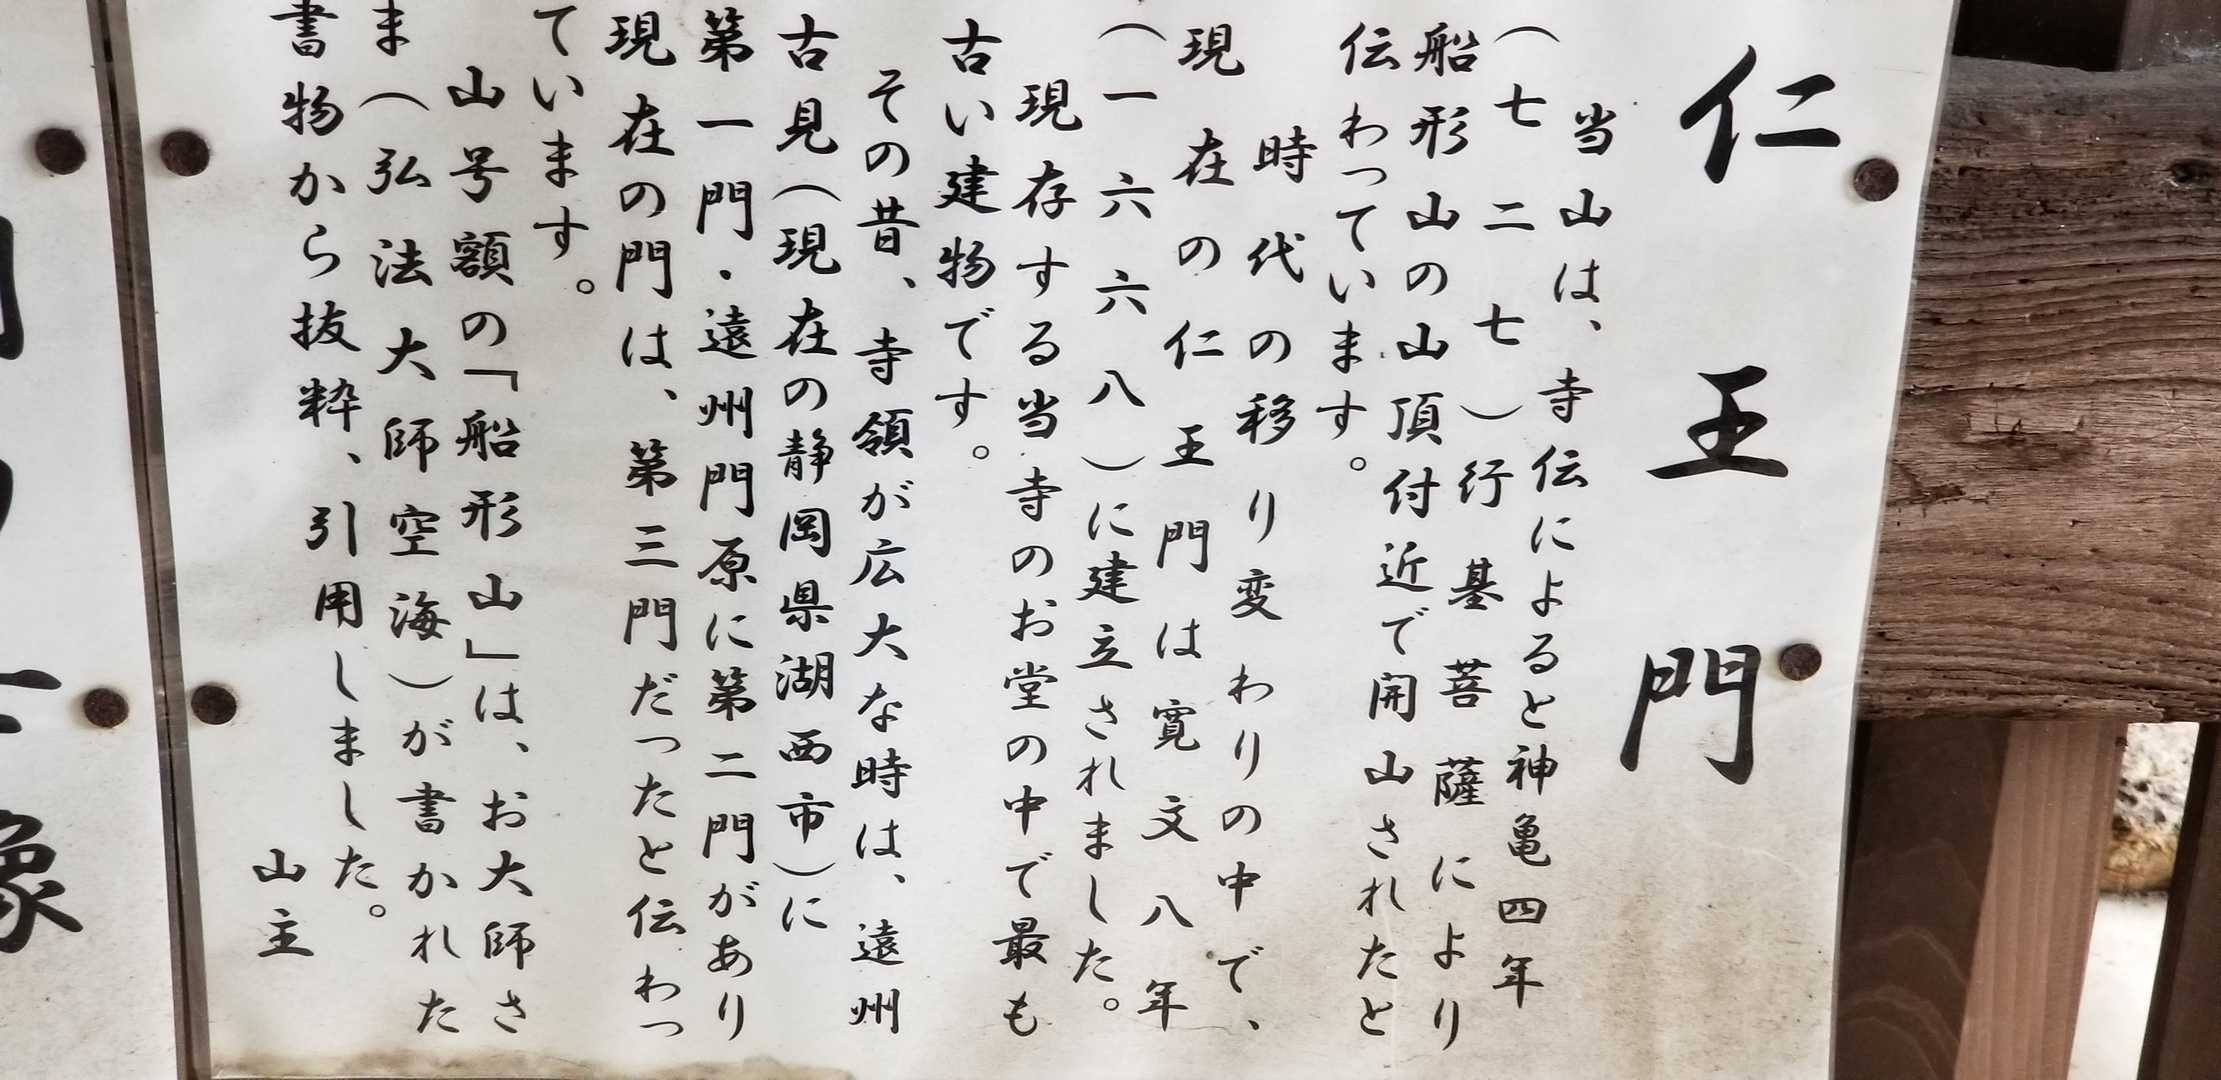 仁王門
当山は、寺伝によると神亀四年
（七二七）行基菩薩により
船形山の山頂付近で開山されたと
伝わっています。
時代の移り変わりの中で、
現在の仁王門は寛文八年
（一六六八）に建立されました。
現存する当寺のお堂の中で最も
古い建物です。
その昔、寺領が広大な時は、遠州
古見（現在の静岡県湖西市）に
第一門・遠州門原に第二門があり
現在の門は、第三門だったと伝わっ
ています。
山号額の「船形山」は、お大師さ
ま（弘法大師空海）が書かれた
書物から抜粋、引用しました。
山主
像